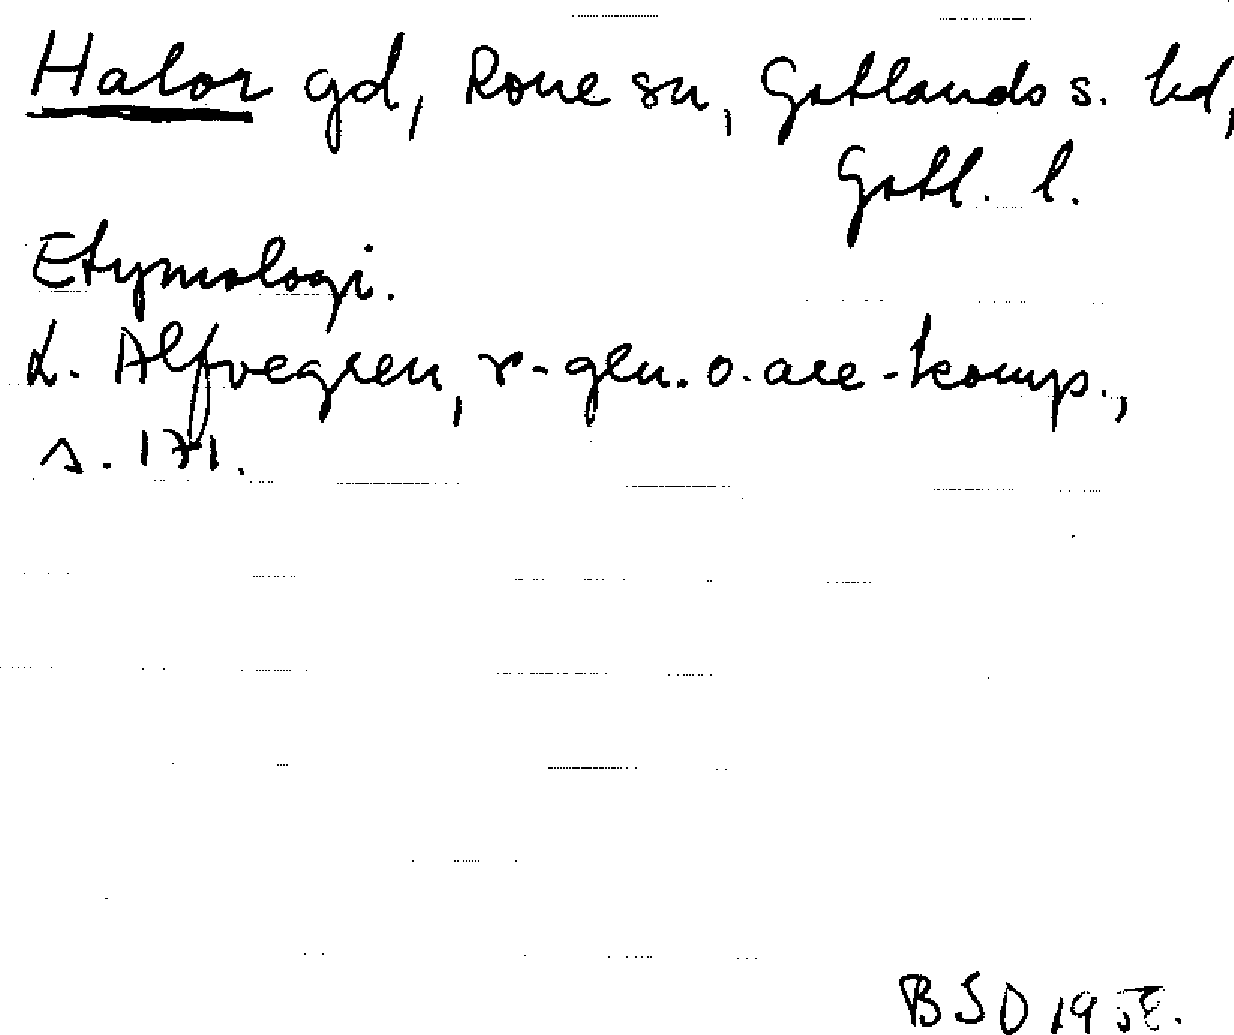 Halor gd, Rone sn, Gotlands s. hd,
Gotl. l.
Etymologi.
L. Alfvegren, r-gen. o. are-komp.,
s. 171.
BSD 19